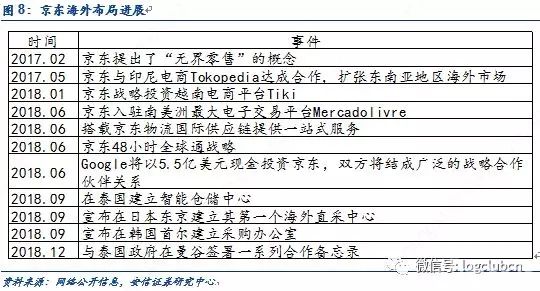 图 8：京东海外布局进展
时间 事件
2017.02 京东提出了“无界零售”的概念
2017.05 京东与印尼电商Tokopedia达成合作，扩张东南亚地区海外市场
2018.01 京东战略投资越南电商平台Tiki
2018.06 京东入驻南美洲最大电子交易平台Mercadolivre
2018.06 搭载京东物流国际供应链提供一站式服务
2018.06 京东48小时全球通战略
2018.06 Google将以5.5亿美元现金投资京东，双方将结成广泛的战略合作
伙伴关系
2018.09 在泰国建立智能仓储中心
2018.09 宣布在日本东京建立其第一个海外直采中心
2018.09 宣布在韩国首尔建立采购办公室
2018.12 与泰国政府在曼谷签署一系列合作备忘录
资料来源：网络公开信息，安信证券研究中心
微信号: logclubcn